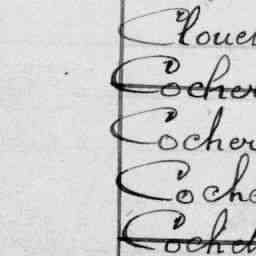 Cloue
Cocher
Cocher
Coche
Coche